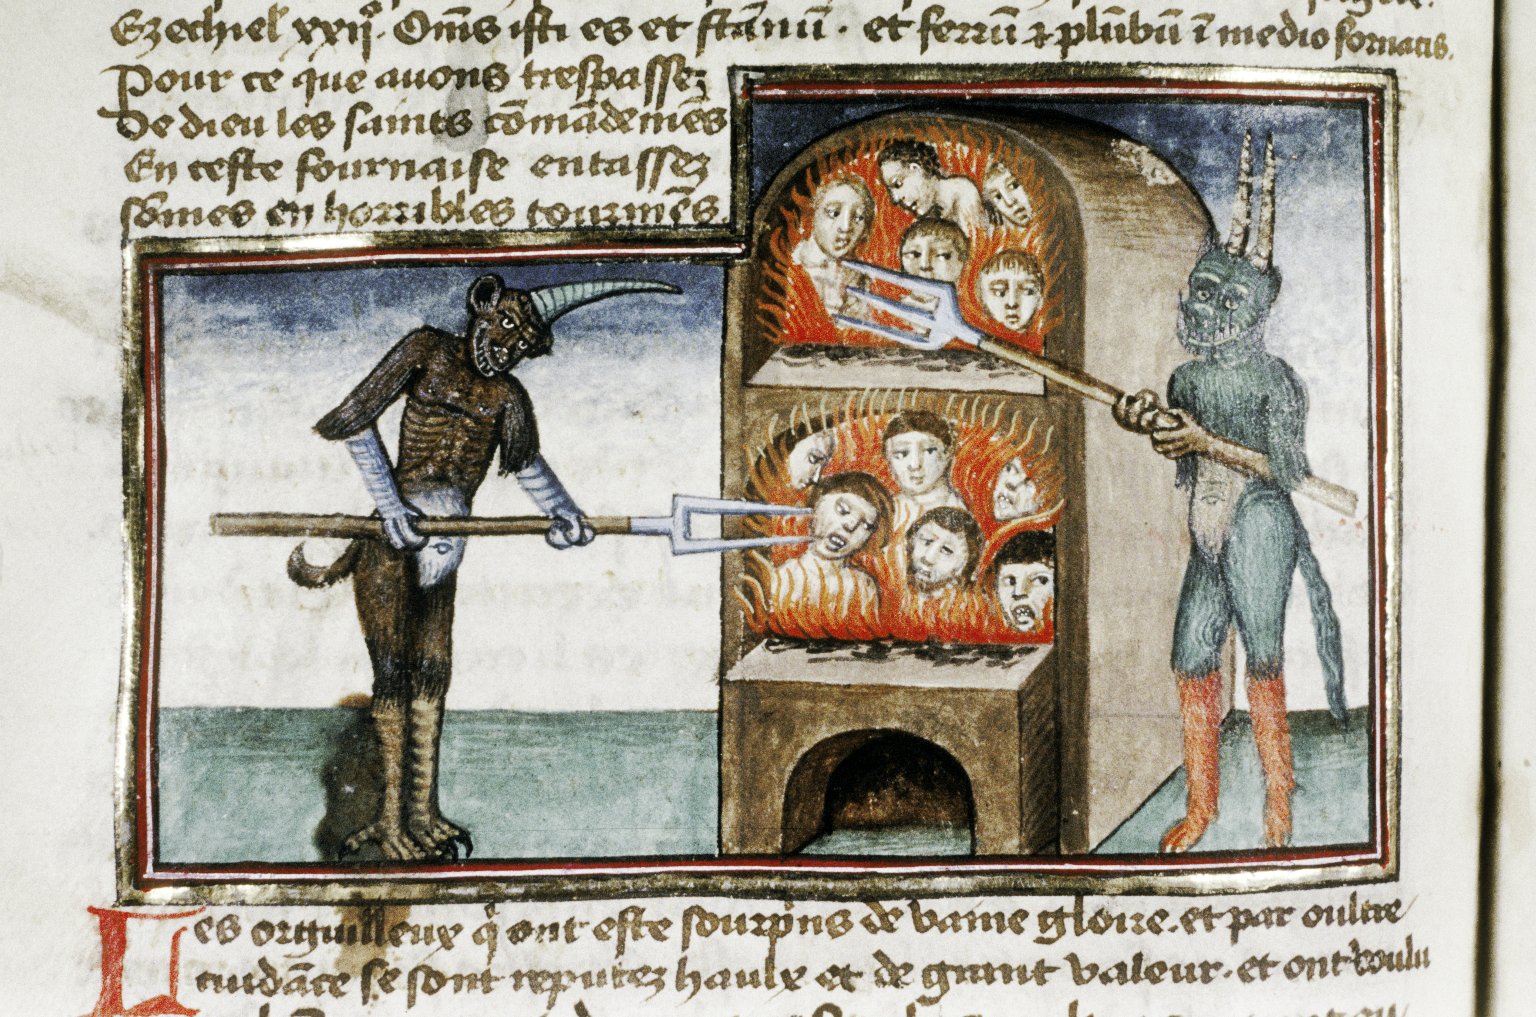 Ezechiel xxijº. Om̄s isti es et stānū. et ferrū ⁊ plūbū ī medio fornacis.
Pour ce que auons trespassez
De dieu les saints cōmādemēs
En ceste fournaise entassez
Sōmes en horribles tourmēs.
Les orguilleux q̄ ont este sourprins de vaine gloire. et par oultre
cuidāce se sont reputez haulx et de grant valeur. et ont voulu